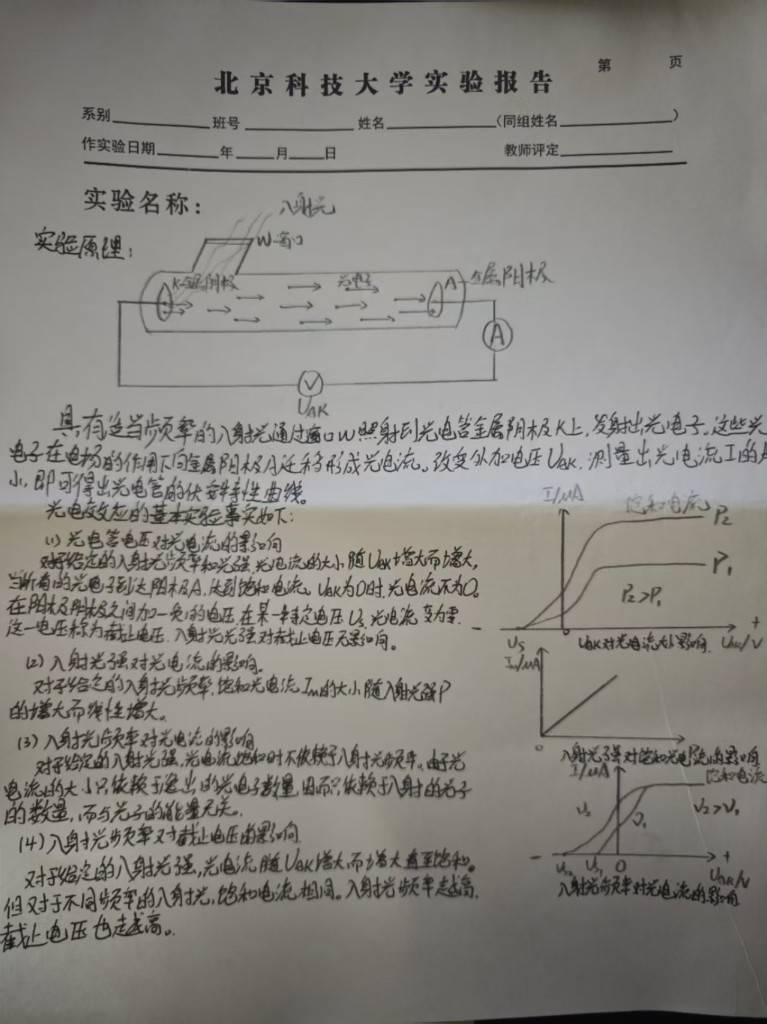 第 页
北京科技大学实验报告
系别 班号 姓名 (同组姓名 )
作实验日期 年 月 日 教师评定
实验名称:
入射光
实验原理:
W-窗口
K-金属阴极
光电子
A
金属阳极
A
V
UAK
具有适当频率的入射光通过窗口W照射到光电管金属阴极K上,发射出光电子,这些光
电子在电场的作用下向金属阳极A迁移形成光电流。改变外加电压UAK,测量出光电流I的大
小,即可得出光电管的伏安特性曲线。
光电效应的基本实验事实如下:
(1)光电管电压对光电流的影响
对于给定的入射光频率和光强,光电流的大小随UAK增大而增大,
当所有的光电子到达阳极A,达到饱和电流。UAK为0时,光电流不为0。
在阳极阴极之间加一负的电压,在某一特定电压Us,光电流变为零.
这一电压称为截止电压.入射光光强对截止电压无影响。
(2)入射光强对光电流的影响。
对于给定的入射光频率,饱和光电流Im的大小随入射光强P
的增大而线性增大。
(3)入射光频率对光电流的影响
对于给定的入射光强,光电流饱和时不依赖于入射光频率,由于光
电流的大小只依赖于逸出的光电子数量,因而只依赖于入射的光子
的数量,而与光子的能量无关。
(4)入射光频率对截止电压的影响
对于给定的入射光强,光电流随UAK增大而增大直至饱和。
但对于不同频率的入射光,饱和电流相同。入射光频率越高,
截止电压也越高。
I/μA
饱和电流
P2
P1
P2>P1
- Us 0 UAK/V +
UAK对光电流大小影响
Im/μA
0
入射光强对饱和光电流的影响
I/μA
饱和电流
ν2 ν1 ν2>ν1
- Us2 Us1 0 UAK/V +
入射光频率对光电流的影响